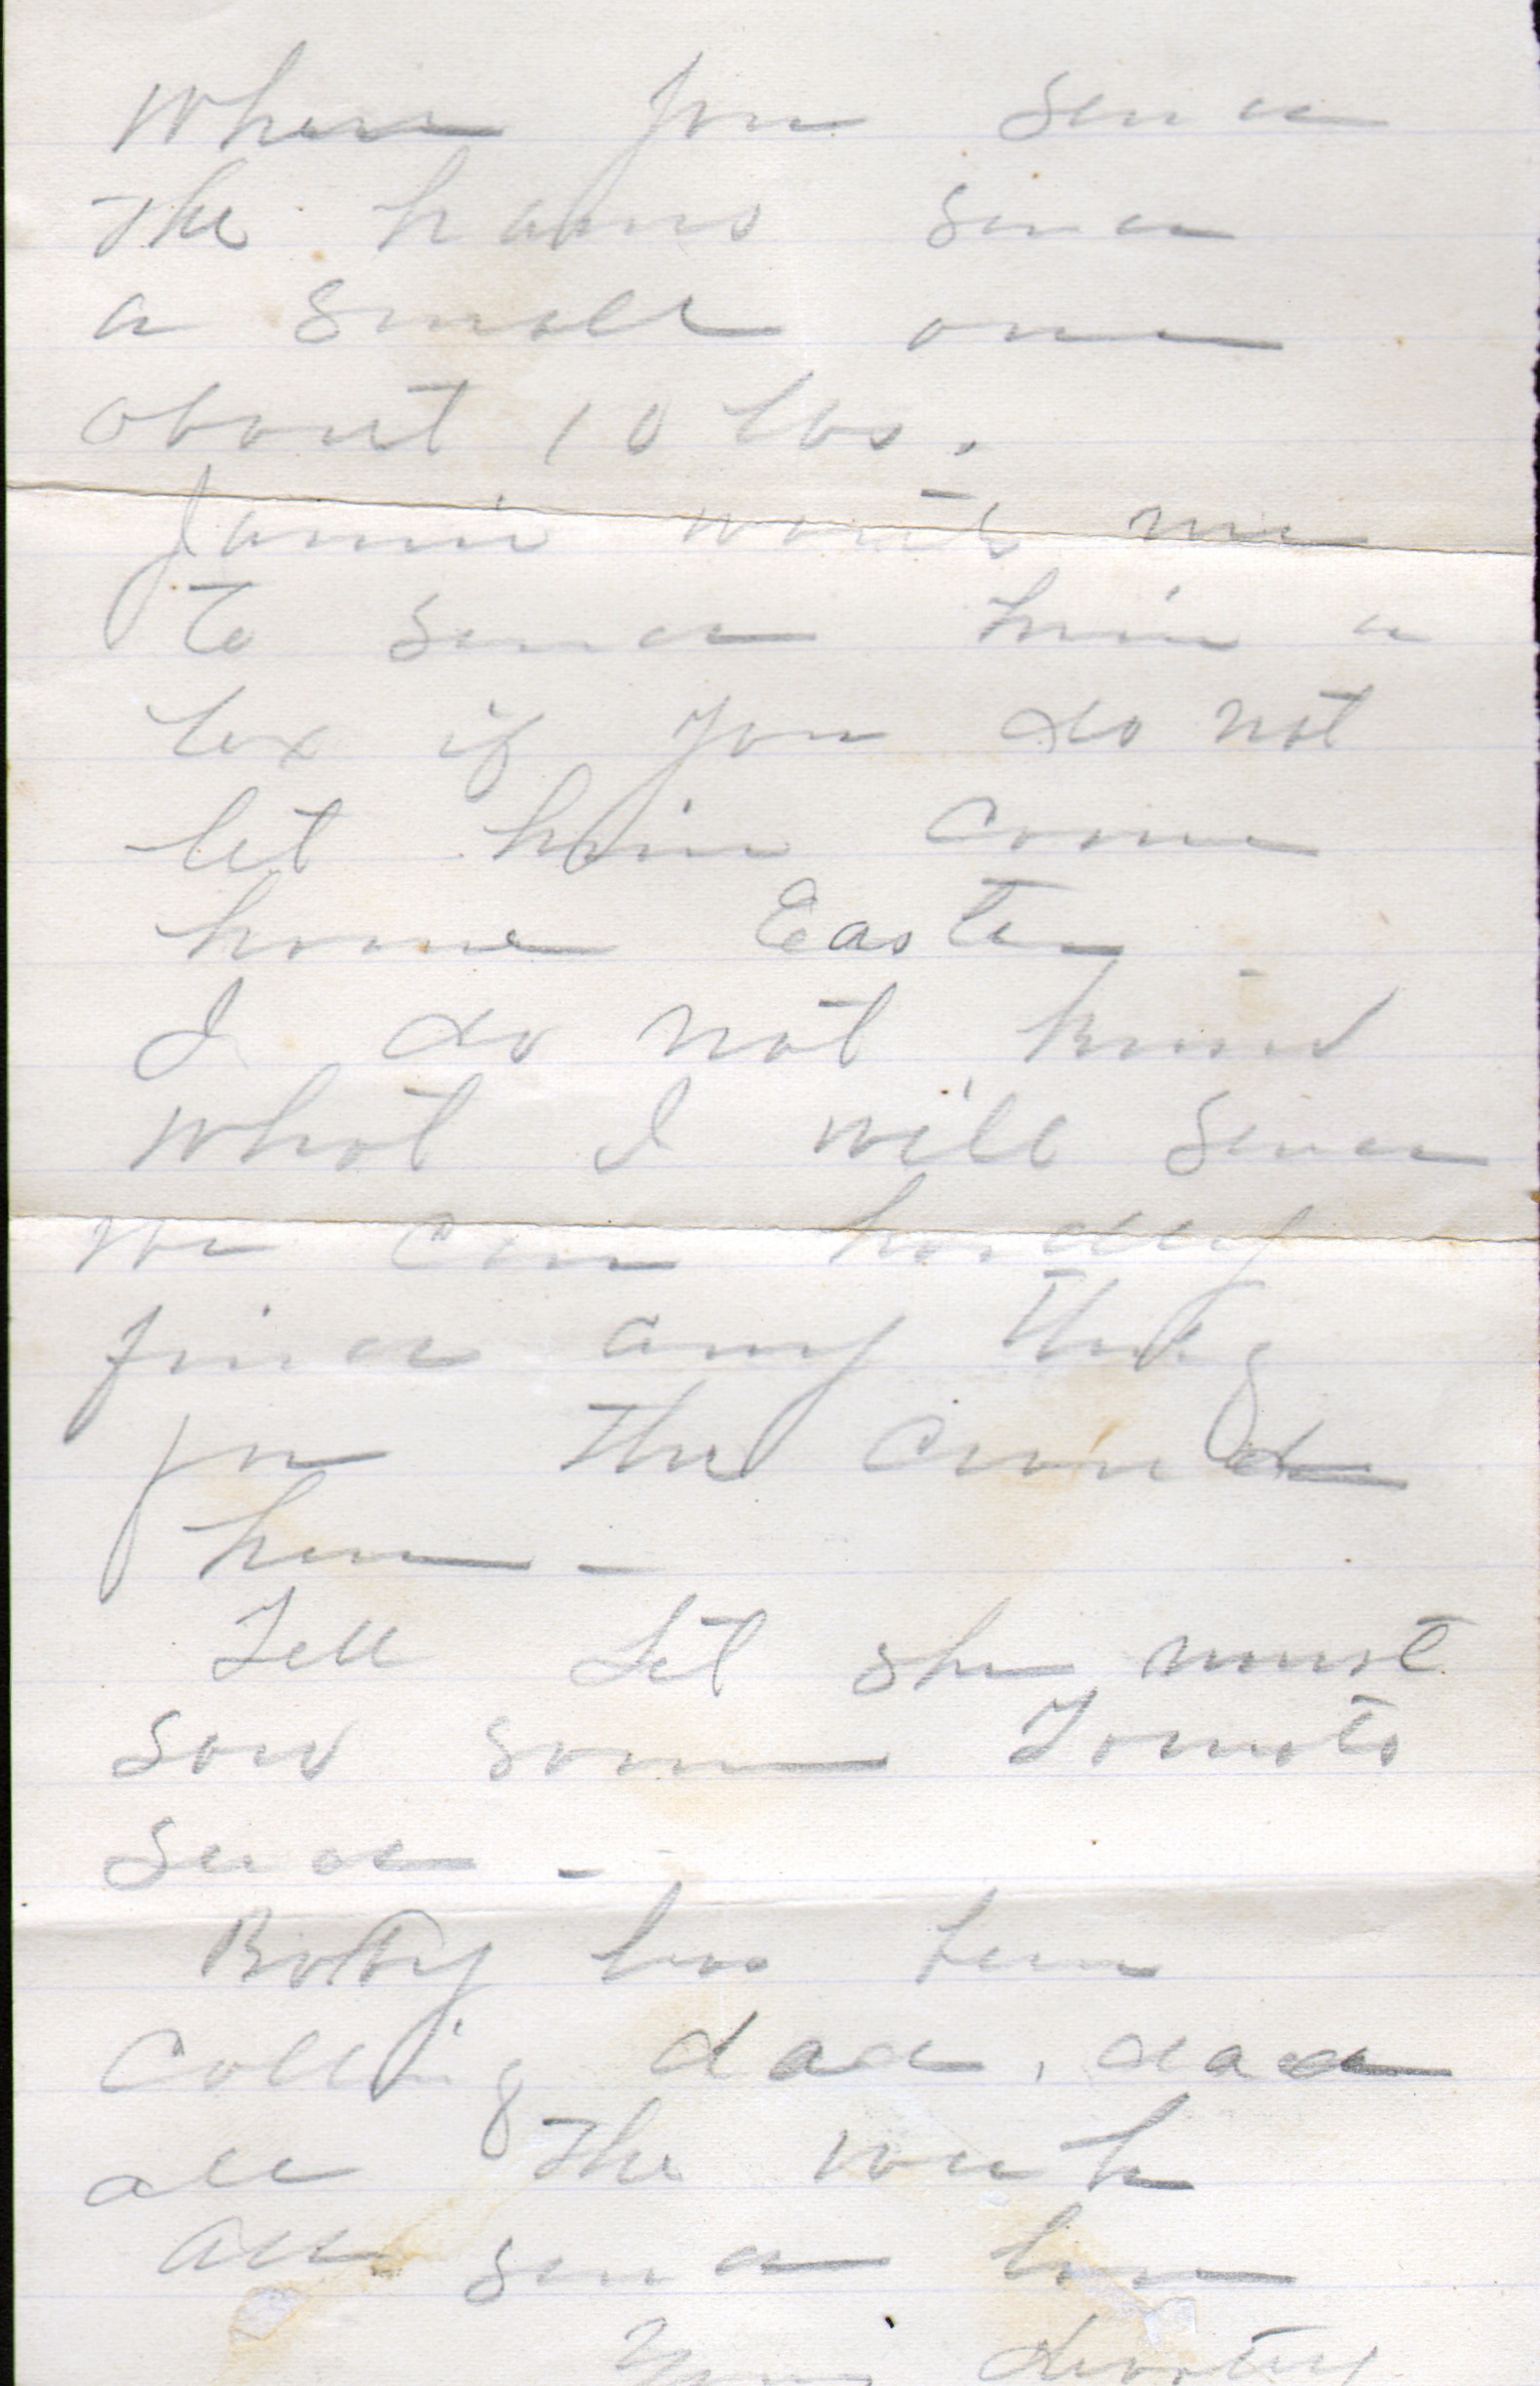 When you send
the hams send
a small one
about 10 lbs.
Jamie wants me
to send him a
box if you do not
let him come
home Easter
I do not know
what I will send
we can hardly
find any thing
for the crowd
here -
Tell Let she must
sow some Tomato
seed -
Botty has been
calling dad, dad
all the week
All send love
Your devoted